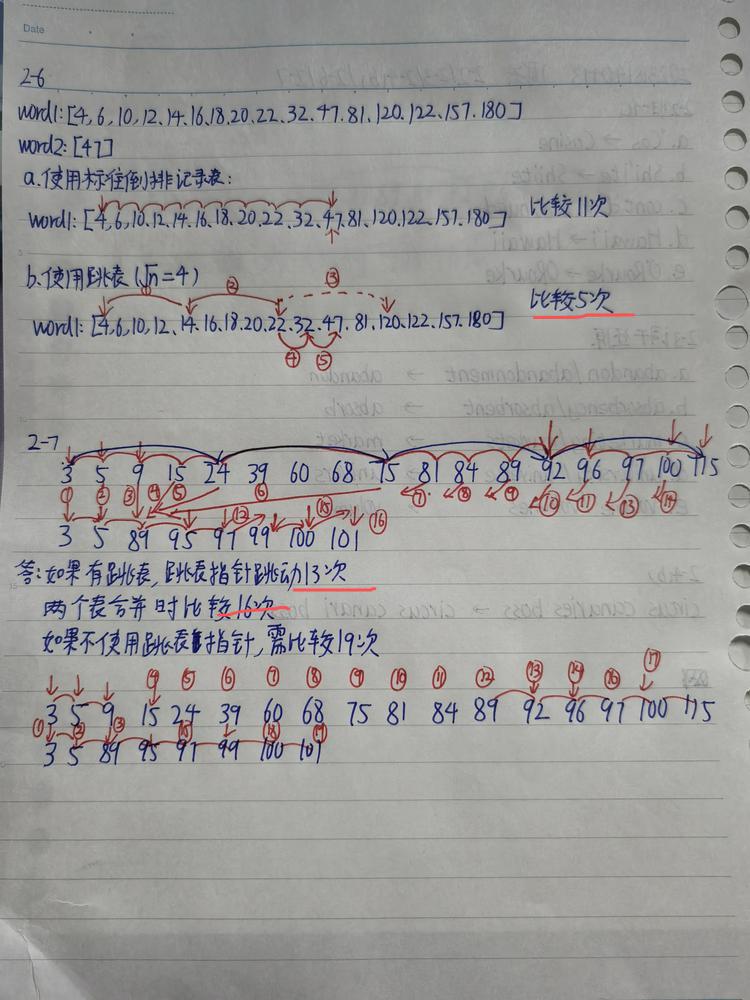 Date
2-6
word1:[4,6,10,12,14.16.18.20.22.32.47.81.120.122.157.180]
word2:[47]
a.使用标准倒排记录表:
word1:[4,6,10.12.14.16.18.20.22.32.47.81.120.122.157.180] 比较11次
b.使用跳表(√n=4)
① ② ③
比较5次
word1:[4,6,10,12,14.16.18.20.22.32.47.81.120.122.157.180]
④ ⑤
2-7
3 5 9 15 24 39 60 68 75 81 84 89 92 96 97 100 115
① ② ③ ④ ⑤ ⑥ ⑦ ⑧ ⑨ ⑩ ⑪ ⑬ ⑭
⑫ ⑮ ⑯
3 5 89 95 97 99 100 101
答:如果有跳表,跳表指针跳动13次
两个表合并时比较16次
如果不使用跳表指针,需比较19次
④ ⑤ ⑥ ⑦ ⑧ ⑨ ⑩ ⑪ ⑫ ⑬ ⑭ ⑯ ⑰
3 5 9 15 24 39 60 68 75 81 84 89 92 96 97 100 115
① ② ③ ⑮ ⑱ ⑲
3 5 89 95 97 99 100 101